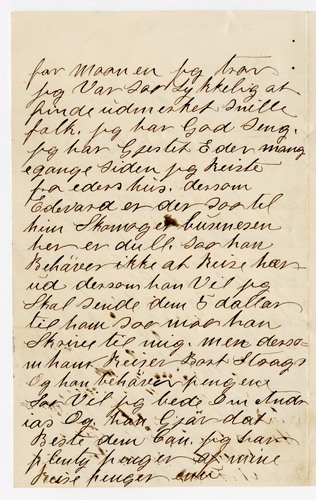 for Maanen jeg tror
jeg Var Saa Lykkelig at
finde udmerket Snille
folk. jeg har God Seng.
jeg har Gjestit Eder mang
egange Siden jeg Reiste
fra eders hus. dersom
Edevard er der Saa til
him Skomager buinesen
her er dull Saa han
Behäver ikke at Reise her
ud dersom han Vil jeg
Skal Sende dem 5 dollar
til ham Saa maa han
Skrive til mig. men derso
m ham Reiser Bort Strags
Og han behäver pengene
Saa Vil jeg bede Om Andr
ias Og han Gjär dat
Beste dem Can. jeg har
plenty penger af mine
Reise penger